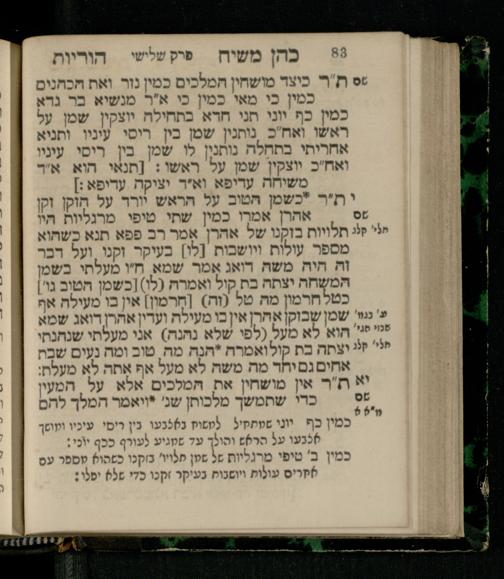 83 כהן משיח פרק שלישי הוריות
שם ת״ר כיצד מושחין המלכים כמין נזר ואת הכהנים
כמין כי מאי כמין כי א״ר מנשיא בר גדא
כמין כף יוני תני חדא בתחילה יוצקין שמן על
ראשו ואח״כ נותנין שמן בין ריסי עיניו ותניא
אחריתי בתחלה נותנין לו שמן בין ריסי עיניו
ואח״כ יוצקין שמן על ראשו: [תנאי הוא א״ד
משיחה עדיפא וא״ד יציקה עדיפא:]
י ת״ר *כשמן הטוב על הראש יורד על הזקן זקן
שם אהרן אמרו כמין שתי טיפי מרגליות היו
תלי׳ קלג תלויות בזקנו של אהרן אמר רב פפא תנא כשהוא
מספר עולות ויושבות [לו] בעיקר זקנו ועל דבר
זה היה משה דואג אמר שמא ח״ו מעלתי בשמן
המשחה יצתה בת קול ואמרה (לו) [כשמן הטוב גו׳]
כטל חרמון מה טל (זה) [חרמון] אין בו מעילה אף
שמן שבזקן אהרן אין בו מעילה ועדין אהרן דואג שמא
הוא לא מעל (לפי שלא נהנה) אני מעלתי שנהנתי
תלי׳ קלג יצתה בת קול ואמרה *הנה מה טוב ומה נעים שבת
אחים גם יחד מה משה לא מעל אף אתה לא מעלת:
יא ת״ר אין מושחין את המלכים אלא על המעין
שם כדי שתמשך מלכותן שנ׳ *ויאמר המלך להם
מ״א א
כמין כף יוני שמתחיל למשוח באצבעו בין ריסי עיניו ומושך
אצבעו על הראש והולך עד שמגיע לעורף ככף יוני:
כמין ב׳ טיפי מרגליות של שמן תלויו׳ בזקנו כשהוא מספר עם
אחרים עולות ויושבות בעיקר זקנו כדי שלא יפלו: